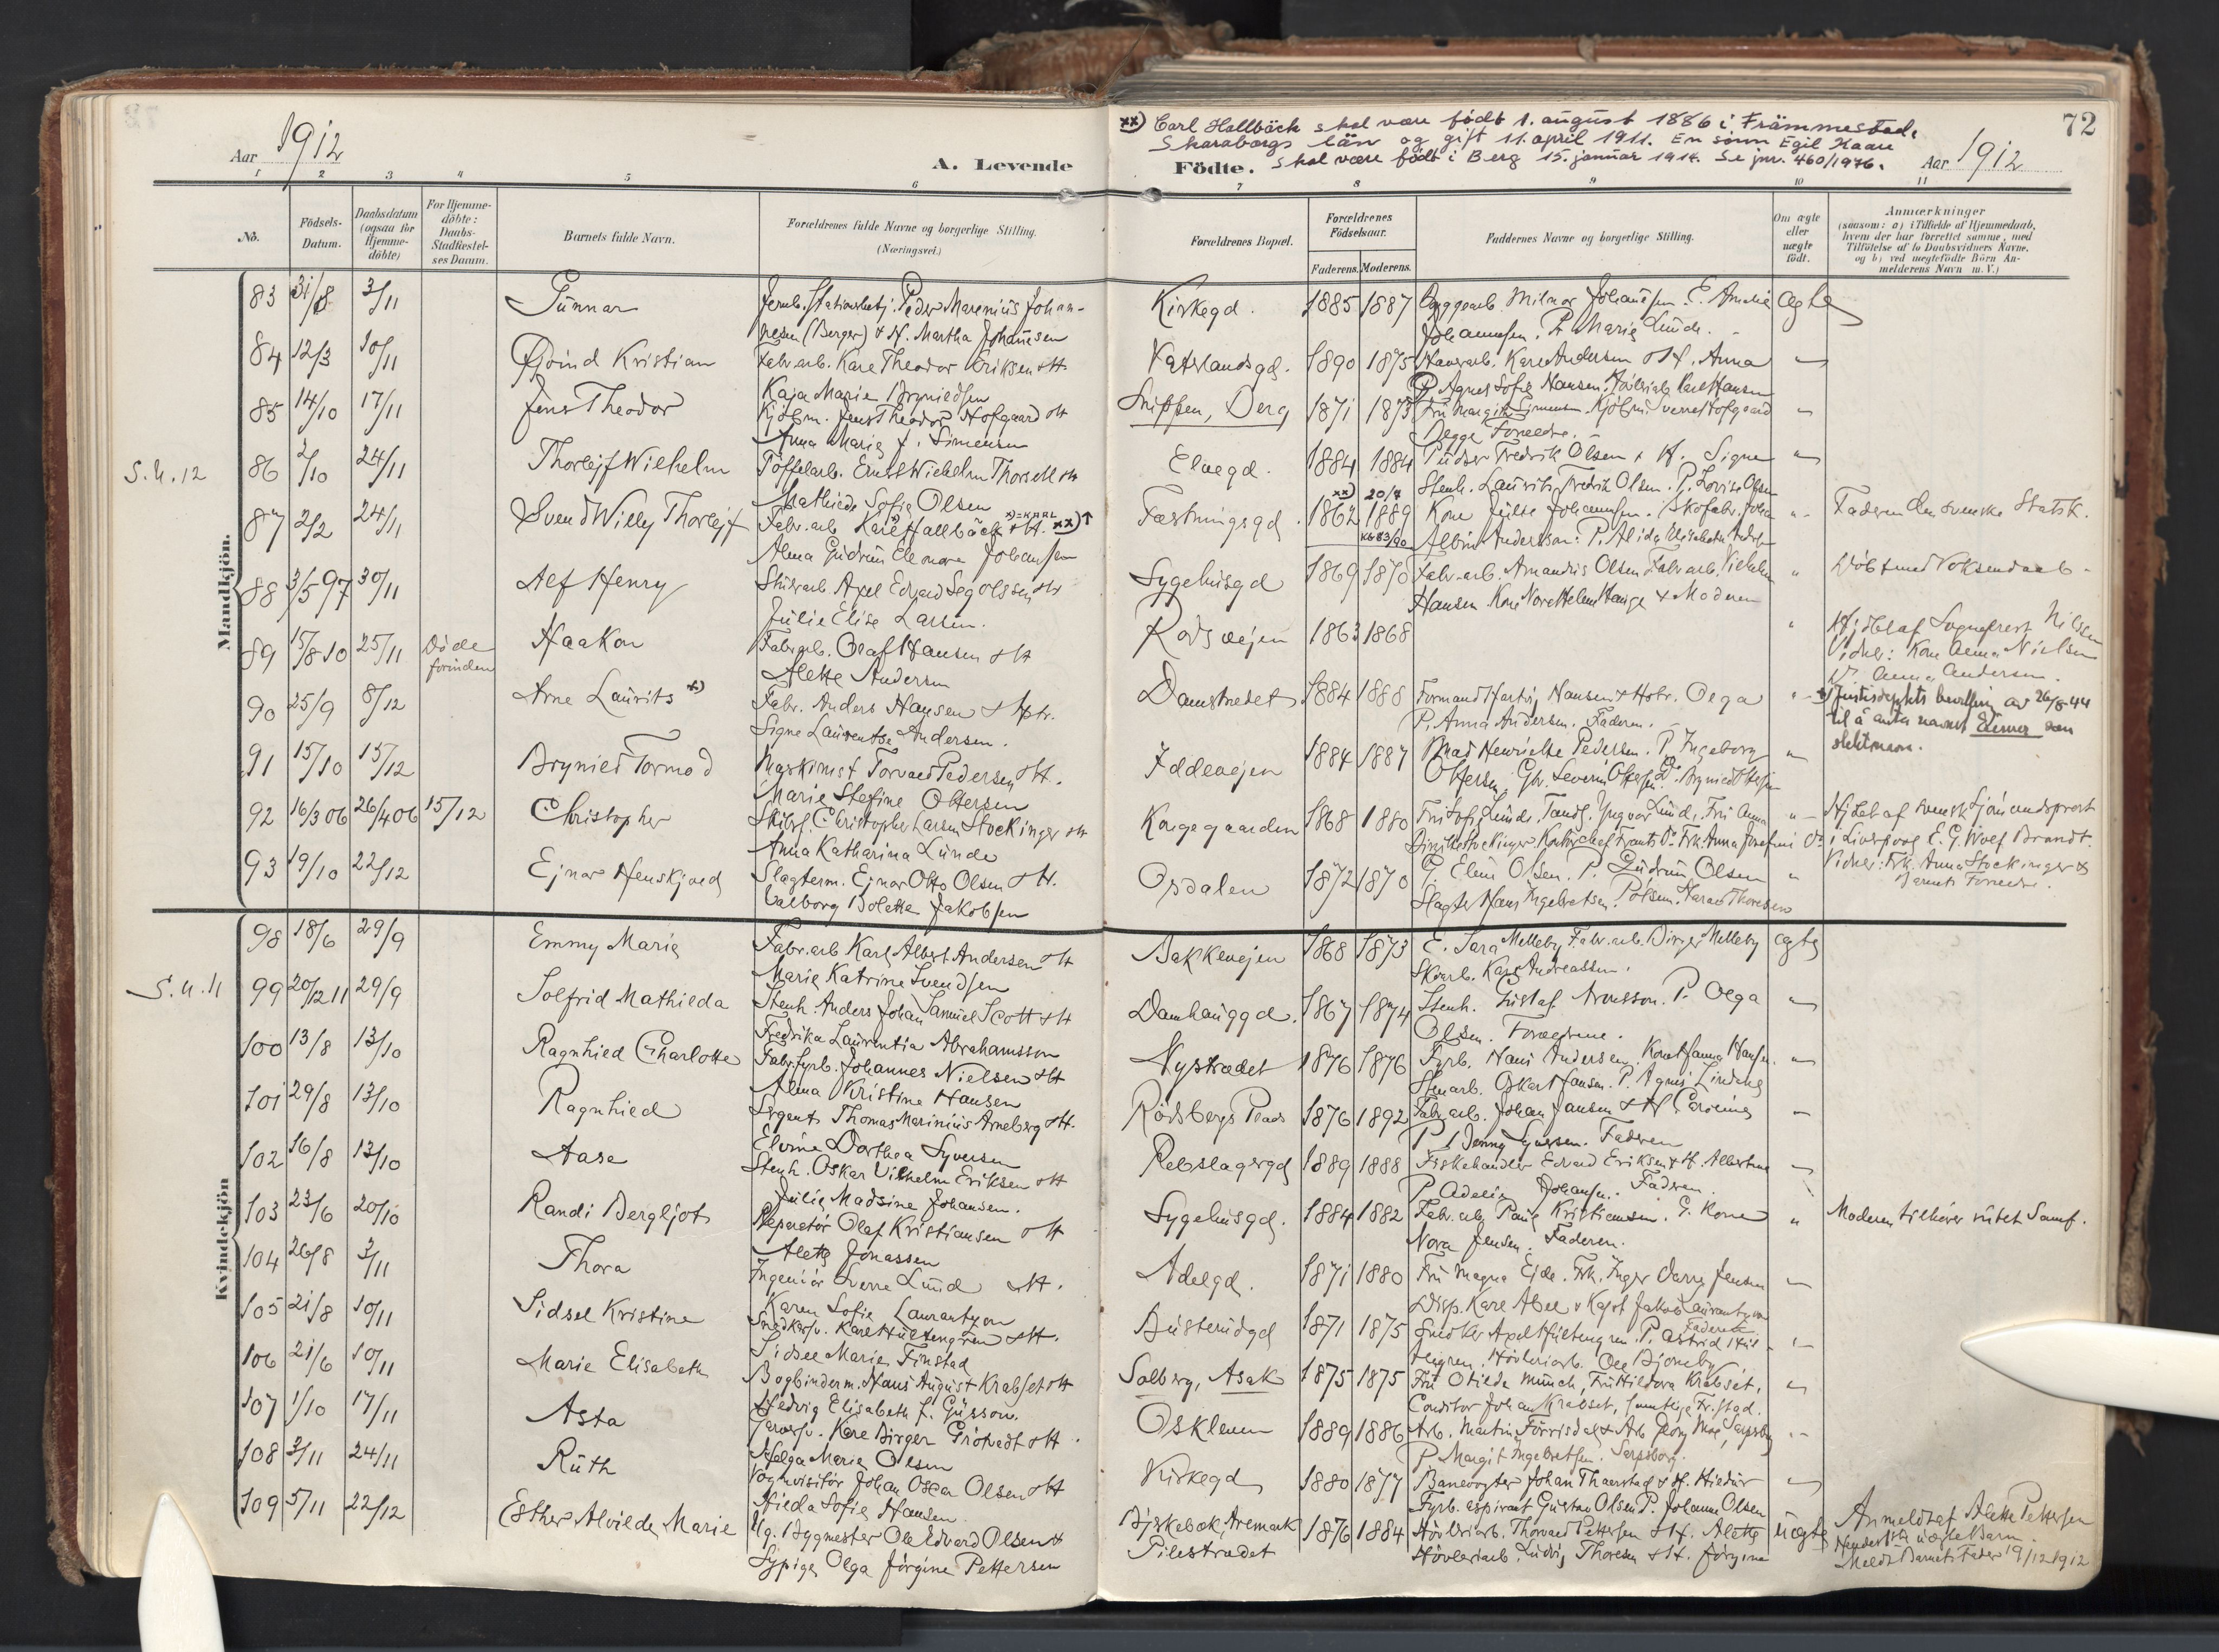 Aar 1912
A. Levende
xx) Carl Hallbäck skal være født 1. august 1886 i Främmestad,
Skaraborgs län og gift 11. april 1911. En sønn Egil Kaare
skal være født i Berg 15. januar 1914. Se jnr. 460/1976.
72
Födte.
Aar 1912
1 2 3 4 5 6 7 8 9 10 11
No.
Födsels-
Datum.
Daabsdatum
(ogsaa for
Hjemme-
döbte)
For Hjemme-
döbte:
Daabs-
Stadfæstel-
ses Datum.
Barnets fulde Navn.
Forældrenes fulde Navne og borgerlige Stilling.
(Næringsvei.)
Forældrenes Bopæl.
Forældrenes
Födselsaar.
Faderens. Moderens.
Faddernes Navne og borgerlige Stilling.
Om ægte
eller
uægte
födt.
Anmærkninger
(saasom: a) i Tilfælde af Hjemmedaab,
hvem der har forrettet samme, med
Tilföielse af to Daabsvidners Navne,
og b) ved uægtefödte Börn An-
melderens Navn m. V.)
Mandkjön.
83 31/8 3/11 Gunnar Peder Marenius Johan-
nesen (Berger) & H. Martha Johannesen
Kirkegd. 1885 1887 Johannesen. P. Marie Lunde. ægte
84 12/3 10/11 Øjvind Kristian Fabr.arb. Karl Theodor Eriksen & H
Kaja Marie Bryniedsen
1890 1875 Karl Andersen & H. Anna
P. Agnes Sofie Hansen.
85 14/10 17/11 Jens Theodor Kjøbm. Jens Theodor Hofgaard & H
Anna Marie f. Simensen
Berg 1871 1873 Fru Margit Simensen
Begge Forældre.
S.U. 12
86 2/10 24/11 Thorlejf Wilhelm Tøffelarb. Ernst Wilhelm Thorsell & H
Mathilde Sofie Olsen
Elvegd. 1884 1884 Pudser Fredrik Olsen & H. Signe
Stenh. Laurits Fredrik Olsen. P. Lovise Olsen
87 2/2 24/11 Svend Willy Thorlejf Fabr.arb. Karl Hallbäck & H. xx)
x) = KARL
Alma Gudrun Eleonora Johansen
Fæstningsgd. xx) 1862 20/7 1889
Kb 83/90
Albin Andersson. P. Alida Elisabeth
Faderen den svenske Statsk.
88 3/5 97 30/11 Alf Henry Axel Edvard Segolsson & H
Julie Elise Larsen.
Sygehusgd 1869 1870 Fabr.arb. Amandus Olsen. Fabr.arb. Vilhelm
Hansen & Moderen
Døbt med Voksendaab
89 15/8 10 25/11 Døde
forinden
Haakon Fabr.arb. Olaf Hansen & H
Alette Andersen
Rødsvejen 1863 1868
Hj.døbt af Sogneprest Nilssen
Vidner: Kone Anna Nielsen
Anna Andersen.
90 25/9 8/12 Arne Laurits x) Fabr. Anders Hansen & Hstr.
Signe Laurentse Andersen.
Damstredet 1884 1888 Formand Hartvig Hansen & Hstr. Olga
P. Anna Andersen. Faderen.
x) Justisdeptets bevilling av 26/8-44
til å anta navnet som
slektnavn.
91 15/10 15/12 Brynied Tormod Maskinist Torvald Pedersen & H.
Marie Stefine Ottersen
Iddevejen 1884 1887 Mat. Henriette Pedersen. P. Ingeborg
Ottersen. Gbr. Severin Ottersen.
92 16/3 06 26/4 06 15/12 Christopher Skibsf. Christopher Larsen Stockinger & H
Anna Katharina Lunde
Kongegaarden 1868 1880 Fru Sofie Lunde, Tandl. Yngvar Lund, Fru Anna
Hj.døbt af svensk Sjømandsprest
i Liverpool E. G. Wolf Brandt.
Vidner: Frk. Anna Stockinger &
Barnets Forældre.
93 19/10 22/12 Ejnar Henskjold Slagterm. Ejnar Otto Olsen & H.
Valborg Bolette Jakobsen
Opdalen 1872 1870 G. Elen Olsen. P. Gudrun Olsen
Slagter Hans Ingebretsen. Harald Thoresen
Kvindekjön
98 18/6 29/9 Emmy Marie Fabr.arb Karl Albert Andersen & H
Marie Katrine Svendsen
Bakkevejen 1868 1873 E. Sara Melleby. Fabr.arb. Birger Melleby ægte
Skoarb. Karl Andreassen.
S.U. 11
99 20/12 11 29/9 Solfrid Mathilda Stenh. Anders Johan Samuel Scott & H
Fredrika Laurentia Abrahamsson
Damhauggd. 1867 1874 Stenh. Gustaf Aronsson. P. Olga
Olsen. Forældrene.
100 13/8 13/10 Ragnhild Charlotte Fabr.fyrb. Johannes Nielsen & H
Alma Kristine Hansen
Nystrædet 1876 1876 Fyrb. Hans Andersen. Kone Hanna Hansen.
Stenarb. Oskar Hansen. P. Agnes Lindberg
101 29/8 13/10 Ragnhild Sergent Thomas Marinius Arneberg & H.
Elvine Dorthea Syversen
Rødsbergs Plads 1876 1892 Fabr.arb. Johan Jansen & H. Caroline
P. Jenny Syversen. Faderen
102 16/8 13/10 Aase Stenh. Oskar Vilhelm Eriksen & H
Julie Madsine Johansen.
Rebslagergd 1889 1888 Fiskehandler Edvard Eriksen & H. Albertine
P. Adelin Johansen. Faderen.
103 23/6 20/10 Randi Bergljot Reparatør Olaf Kristiansen & H
Alette Jonassen
Sygehusgd. 1884 1882 Fabr.arb. Paul Kristiansen. G. Kone
Nora Jensen. Faderen.
Moderen tilhører intet Samf.
104 26/8 3/11 Thora Ingeniør Sverre Lund & H.
Karen Sofie Laurantzon
Adelgd. 1871 1880 Fru Magna Ejde. Frk. Inger Jensen
Disp. Karl Abel & Kapt. Jakob Laurantzon
105 21/8 10/11 Sidsel Kristine Snedkersv. Karl Hultengren & H.
Sidsel Marie Finstad
Busterudgd 1871 1875 Snedker Axel Hultengren. P. Astrid Hul-
Faderen
tengren. Høvleriarb. Ole Bjørneby.
106 21/6 10/11 Marie Elisabeth Bogbinderm. Hans August Krabset & H
Hedvig Elisabeth f. Gusson.
Solberg, Asak 1875 1875 Fru Otilde Munch, Fru Hildora Krabset,
Conditor Johan Krabset, samtlige Fr.stad.
107 1/10 17/11 Asta Karl Birger Grötvedt & H.
Helga Marie Olsen
Osklenen 1889 1886 Arb. Martin & Arb. Georg Moe, Sarpsborg
P. Margit Ingebretsen. Sarpsborg.
108 3/11 24/11 Ruth Vognvisitør Johan Oskar Olsen & H
Hilda Sofie Hansen.
Kirkegd 1880 1877 Banevogter Johan Thaarstad & H.
Fyrb. aspirant Gustav Olsen. P. Johanne Olsen
109 5/11 22/12 Esther Alvilde Marie Ug. Bygmester Ole Edvard Olsen &
Sypige Olga Jørgine Pettersen
Bjørkebæk, Aremark
Pilestrædet
1876 1884 Høvleriarb. Thorvald Pettersen & H. Alette
Høvleriarb. Ludvig Thoresen & H. Jørgine
uægte
Anmeldt af Alette Pettersen
uægte Barn.
Meldt Barnets Fader 19/12 1912